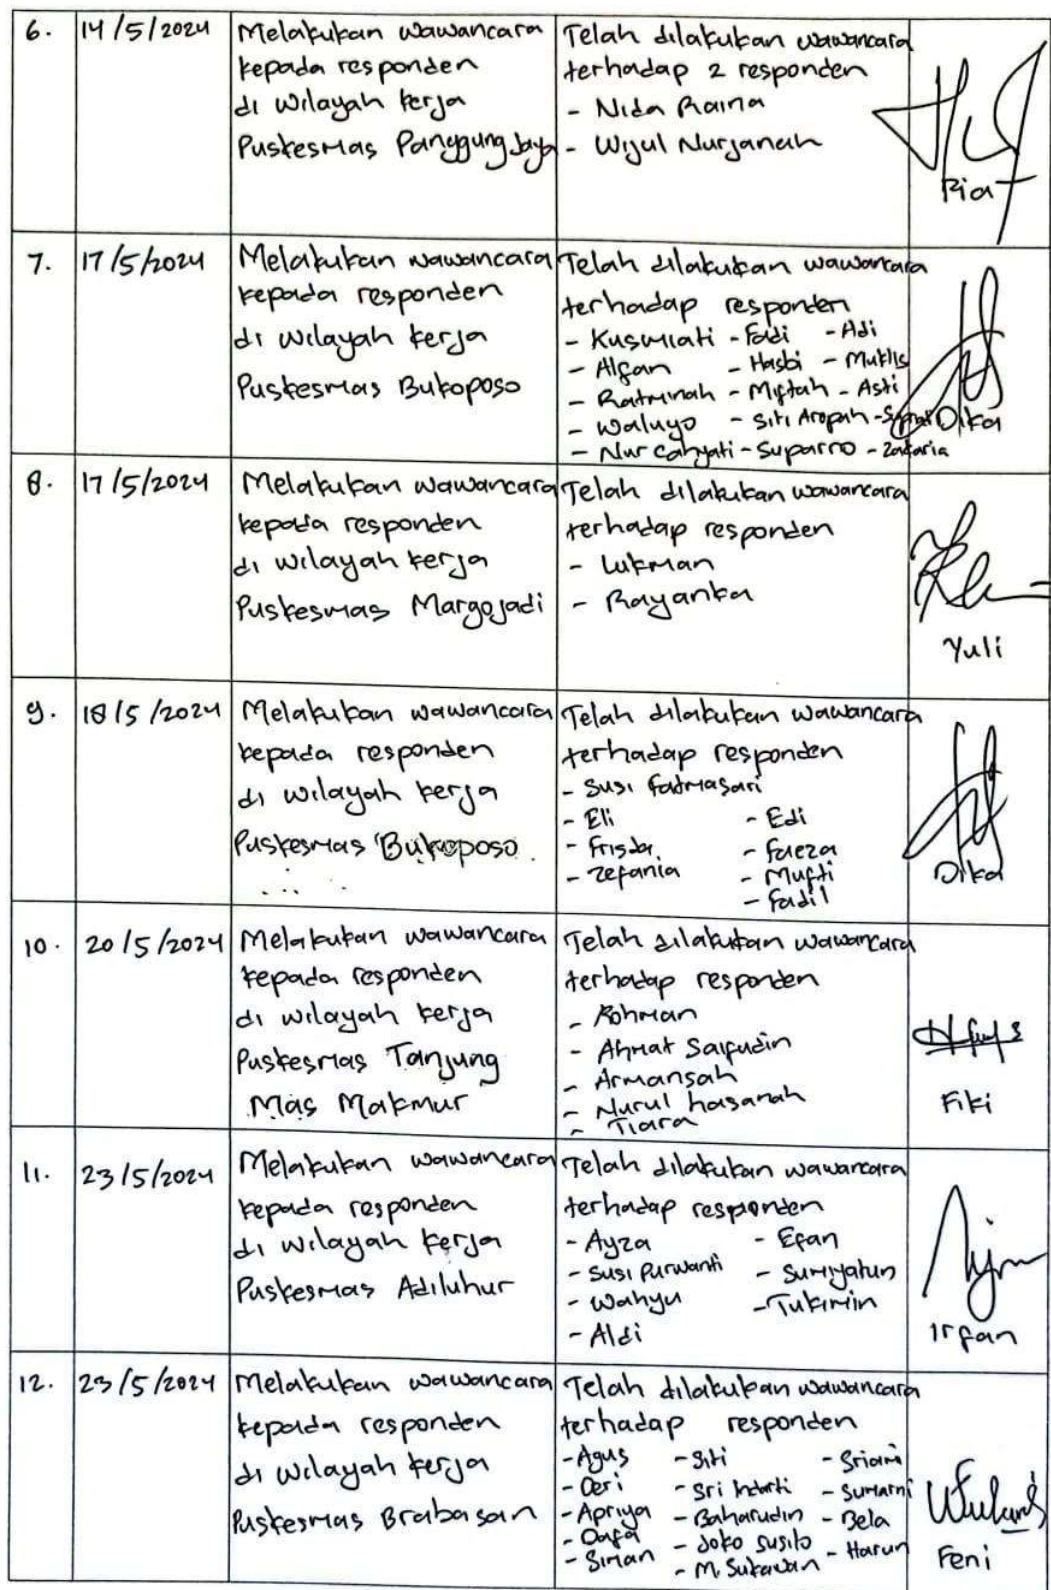 6. 14/5/2024 Melakukan wawancara
kepada responden
di wilayah kerja
Puskesmas Panggung Jaya
Telah dilakukan wawancara
terhadap 2 responden
- Nida Raina
- Wijul Nurjanah
Ria
7. 17/5/2024 Melakukan wawancara
kepada responden
di wilayah kerja
Puskesmas Bukoposo
Telah dilakukan wawancara
terhadap responden
- Kusmiati - Fadi - Adi
- Alfan - Hasbi - Muklis
- Ratminah - Miftah - Asti
- Waluyo - Siti Aropah
- Nur Cahyati - Suparno - Zakaria
Dika
8. 17/5/2024 Melakukan wawancara
kepada responden
di wilayah kerja
Puskesmas Margojadi
Telah dilakukan wawancara
terhadap responden
- Lukman
- Rayanka
Yuli
9. 18/5/2024 Melakukan wawancara
kepada responden
di wilayah kerja
Puskesmas Bukoposo
Telah dilakukan wawancara
terhadap responden
- Susi Fatmasari
- Eli - Edi
- Friska - Faeza
- Zefania - Mufti
- Fadil
Dika
10. 20/5/2024 Melakukan wawancara
kepada responden
di wilayah kerja
Puskesmas Tanjung
Mas Makmur
Telah dilakukan wawancara
terhadap responden
- Rohman
- Ahmat Saifudin
- Armansah
- Nurul hasanah
- Tiara
Fiki
11. 23/5/2024 Melakukan wawancara
kepada responden
di wilayah kerja
Puskesmas Adiluhur
Telah dilakukan wawancara
terhadap responden
- Ayza - Efan
- Susi Purwanti - Sumiyatun
- Wahyu - Tukimin
- Aldi
Irfan
12. 23/5/2024 Melakukan wawancara
kepada responden
di wilayah kerja
Puskesmas Brabasan
Telah dilakukan wawancara
terhadap responden
- Agus - Siti - Sriani
- Deri - Sri Indarti - Sumarni
- Apriya - Baharudin - Bela
- Dafa - Joko Susilo - Harun
- Siman - M. Sukawan
Feni